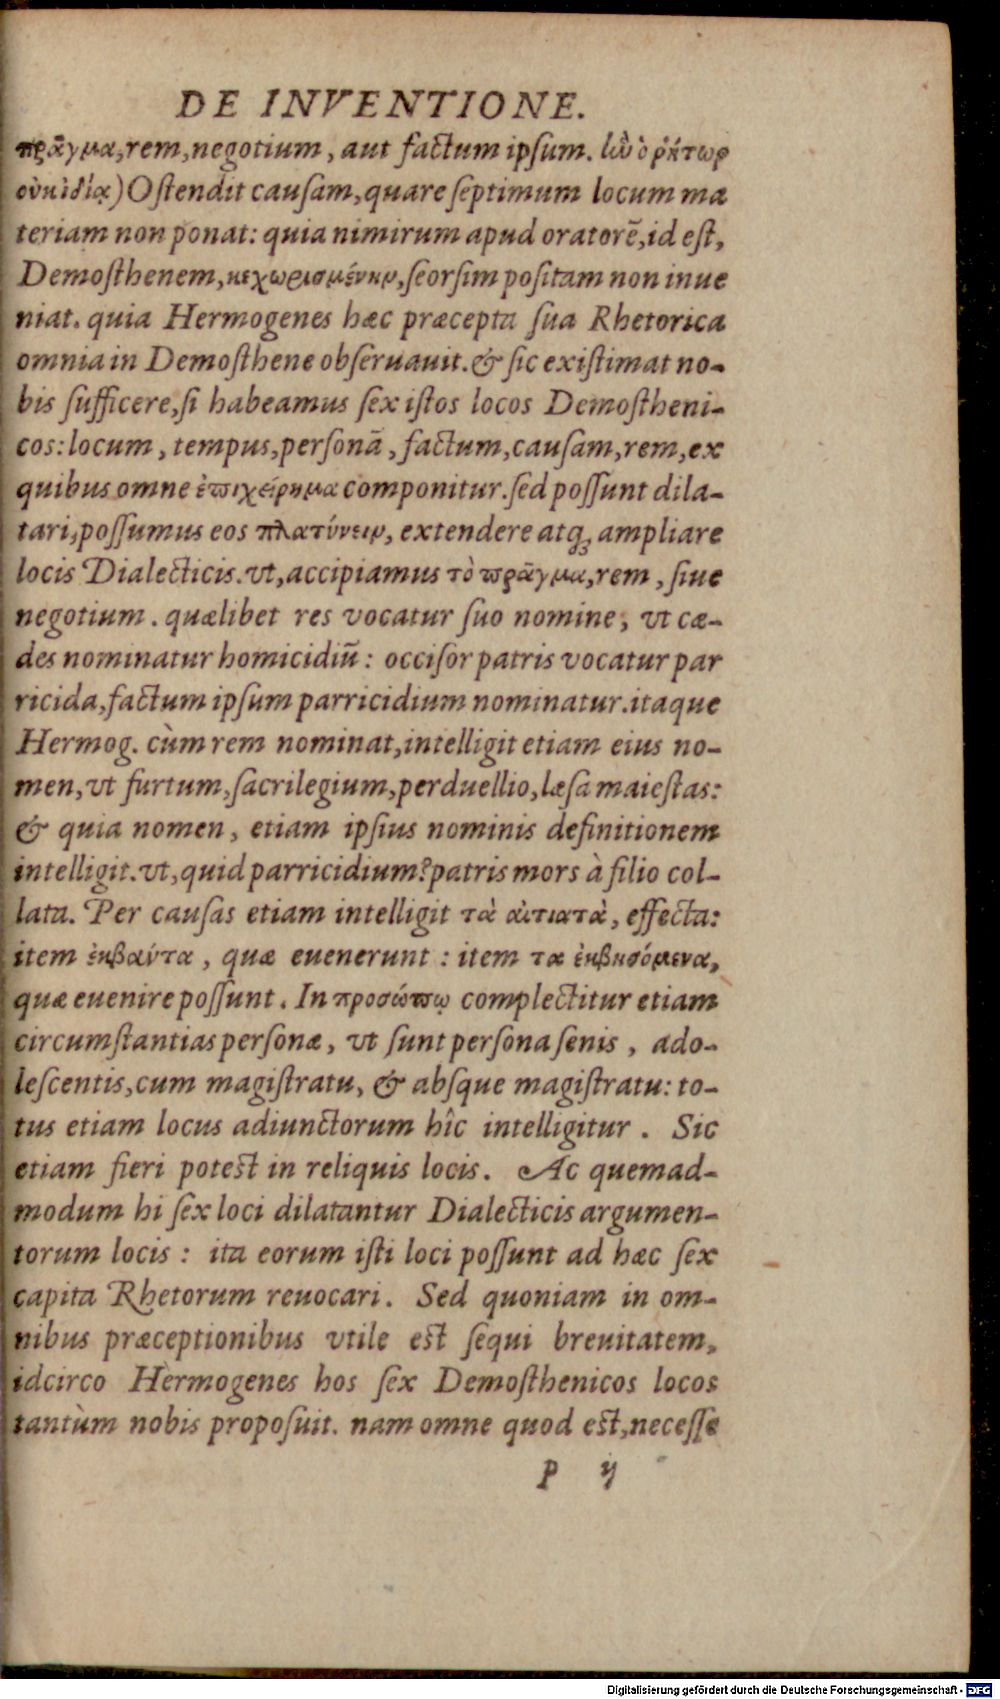 DE INVENTIONE.
πρᾶγμα, rem, negotium, aut factum ipsum. ἣν ὁ ῥήτωρ
οὐκ ἰδίᾳ) Ostendit causam, quare septimum locum ma
teriam non ponat: quia nimirum apud oratorē, id est,
Demosthenem, κεχωρισμένην, seorsim positam non inue
niat. quia Hermogenes hæc præcepta sua Rhetorica
omnia in Demosthene obseruauit. & sic existimat no-
bis sufficere, si habeamus sex istos locos Demostheni-
cos: locum, tempus, personā, factum, causam, rem, ex
quibus omne ἐπιχείρημα componitur. sed possunt dila-
tari, possumus eos πλατύνειν, extendere atq; ampliare
locis Dialecticis. vt, accipiamus τὸ πρᾶγμα, rem, siue
negotium. quælibet res vocatur suo nomine, vt cæ-
des nominatur homicidiū: occisor patris vocatur par
ricida, factum ipsum parricidium nominatur. itaque
Hermog. cùm rem nominat, intelligit etiam eius no-
men, vt furtum, sacrilegium, perduellio, læsa maiestas:
& quia nomen, etiam ipsius nominis definitionem
intelligit. vt, quid parricidium? patris mors à filio col-
lata. Per causas etiam intelligit τὰ αἰτιατὰ, effecta:
item ἐκβάντα, quæ euenerunt: item τα ἐκβησόμενα,
quæ euenire possunt. In προσώπῳ complectitur etiam
circumstantias personæ, vt sunt persona senis, ado-
lescentis, cum magistratu, & absque magistratu: to-
tus etiam locus adiunctorum hîc intelligitur. Sic
etiam fieri potest in reliquis locis. Ac quemad-
modum hi sex loci dilatantur Dialecticis argumen-
torum locis: ita eorum isti loci possunt ad hæc sex
capita Rhetorum reuocari. Sed quoniam in om-
nibus præceptionibus vtile est sequi breuitatem,
idcirco Hermogenes hos sex Demosthenicos locos
tantùm nobis proposuit. nam omne quod est, necesse
P ij
Digitalisierung gefördert durch die Deutsche Forschungsgemeinschaft - DFG